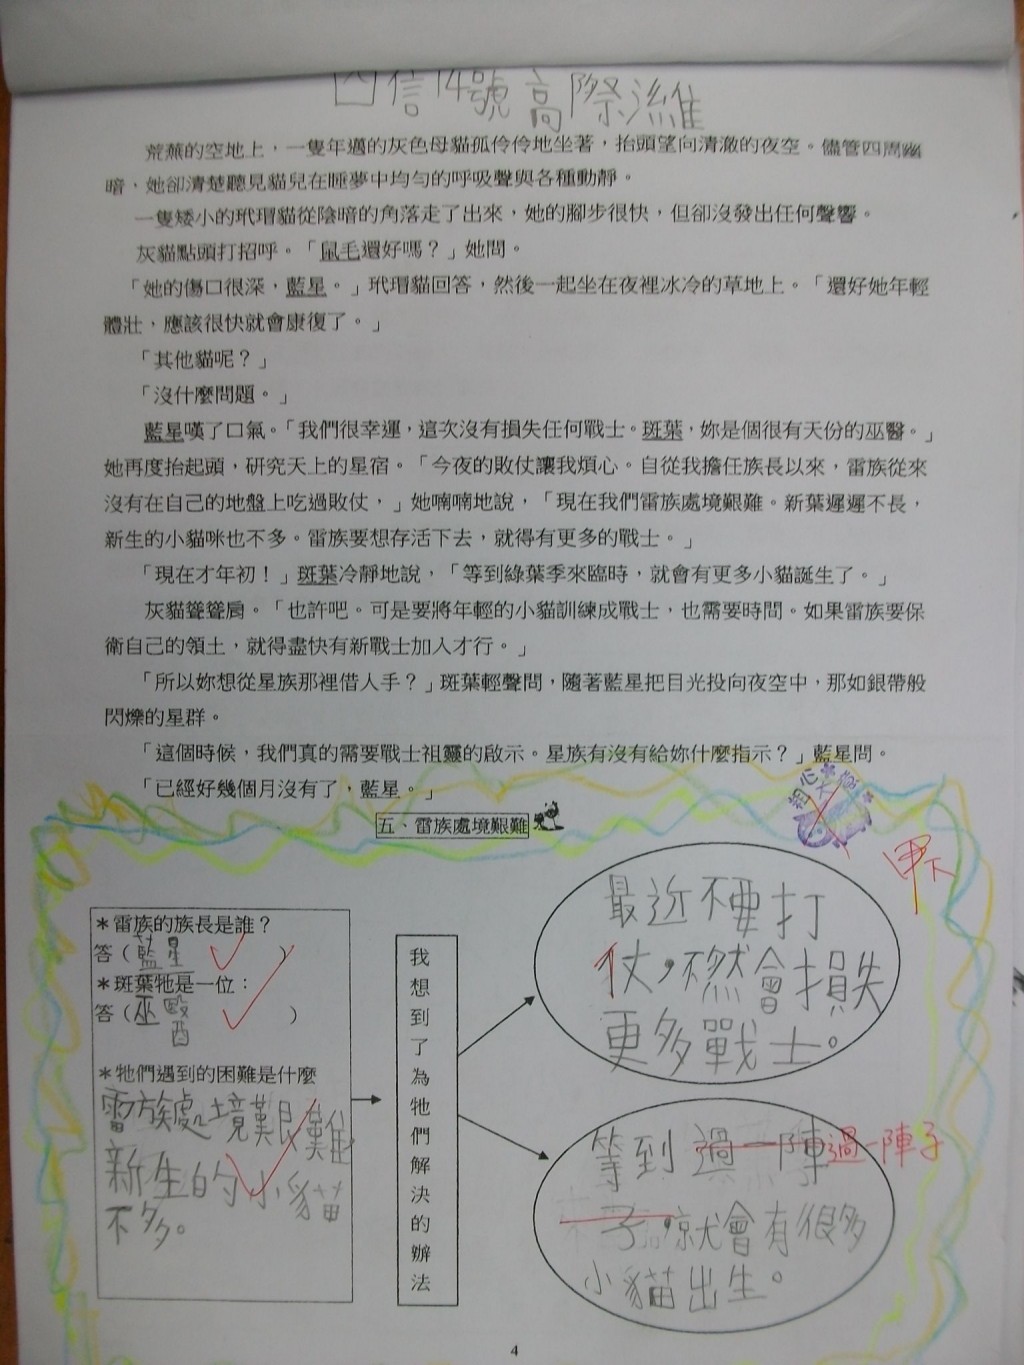 四信14號高際濰
荒蕪的空地上，一隻年邁的灰色母貓孤伶伶地坐著，抬頭望向清澈的夜空。儘管四周幽
暗，她卻清楚聽見貓兒在睡夢中均勻的呼吸聲與各種動靜。
一隻矮小的玳瑁貓從陰暗的角落走了出來，她的腳步很快，但卻沒發出任何聲響。
灰貓點頭打招呼。「鼠毛還好嗎？」她問。
「她的傷口很深，藍星。」玳瑁貓回答，然後一起坐在夜裡冰冷的草地上。「還好她年輕
體壯，應該很快就會康復了。」
「其他貓呢？」
「沒什麼問題。」
藍星嘆了口氣。「我們很幸運，這次沒有損失任何戰士。斑葉，妳是個很有天份的巫醫。」
她再度抬起頭，研究天上的星宿。「今夜的敗仗讓我煩心。自從我擔任族長以來，雷族從來
沒有在自己的地盤上吃過敗仗，」她喃喃地說，「現在我們雷族處境艱難。新葉遲遲不長，
新生的小貓咪也不多。雷族要想存活下去，就得有更多的戰士。」
「現在才年初！」斑葉冷靜地說，「等到綠葉季來臨時，就會有更多小貓誕生了。」
灰貓聳聳肩。「也許吧。可是要將年輕的小貓訓練成戰士，也需要時間。如果雷族要保
衛自己的領土，就得盡快有新戰士加入才行。」
「所以妳想從星族那裡借人手？」斑葉輕聲問，隨著藍星把目光投向夜空中，那如銀帶般
閃爍的星群。
「這個時候，我們真的需要戰士祖靈的啟示。星族有沒有給妳什麼指示？」藍星問。
「已經好幾個月沒有了，藍星。」
五、雷族處境艱難
甲下
＊雷族的族長是誰？
答（藍星）
＊斑葉牠是一位：
答（巫醫）
＊牠們遇到的困難是什麼
雷族處境艱難
新生的小貓
不多。
我想到了為牠們解決的辦法
最近不要打
仗，不然會損失
更多戰士。
等到過一陣過一陣子
子，就會有很多
小貓出生。
4